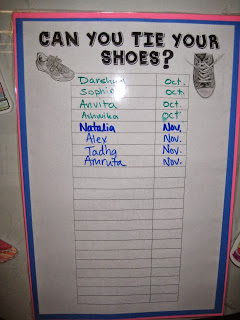 CAN YOU TIE YOUR
SHOES?
Darshya Oct.
Sophia Oct.
Anvita Oct.
Ashwika Oct.
Natalia Nov.
Alex Nov.
Tadhg Nov.
Amruta Nov.